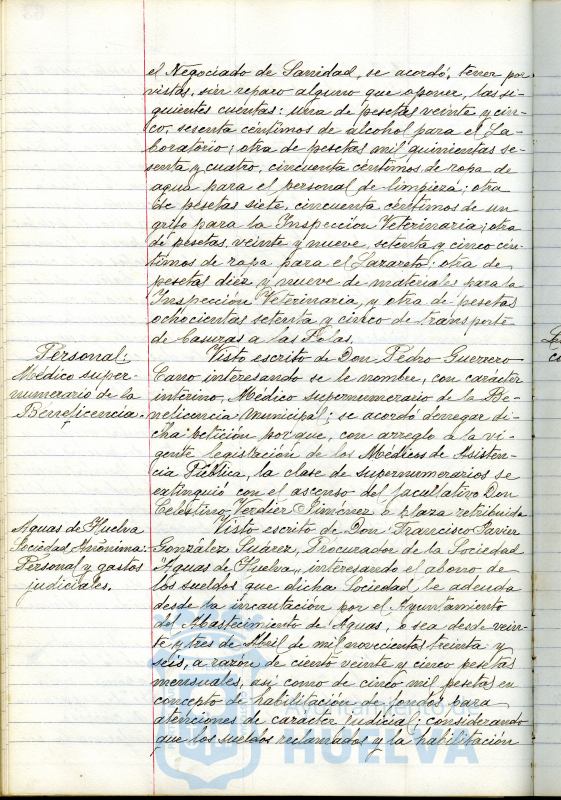 el Negociado de Sanidad, se acordó, tener por
vistas, sin reparo alguno que oponer, las si-
guientes cuentas: una de pesetas veinte y cin-
co, sesenta céntimos de alcohol para el La-
boratorio; otra de pesetas mil quinientas se-
senta y cuatro, cincuenta céntimos de ropa de
agua para el personal de limpieza; otra
de pesetas siete, cincuenta céntimos de un
grifo para la Inspección Veterinaria; otra
de pesetas, veinte y nueve, setenta y cinco cén-
timos de ropa para el Lazareto; otra de
pesetas diez y nueve de materiales para la
Inspección Veterinaria, y otra de pesetas
ochocientas setenta y cinco de transporte
de basuras a las Islas.
Personal:
Médico super-
numerario de la
Beneficencia.
Visto escrito de Don Pedro Guerrero
Cano interesando se le nombre, con carácter
interino, Médico supernumerario de la Be-
neficencia municipal; se acordó denegar di-
cha petición porque, con arreglo a la vi-
gente legislación de los Médicos de Asisten-
cia Pública, la clase de supernumerarios se
extinguió con el ascenso del facultativo Don
Celestino Verdier Jiménez a plaza retribuida
Aguas de Huelva
Sociedad Anónima:
Personal y gastos
judiciales.
Visto escrito de Don Francisco Javier
González Suárez, Procurador de la Sociedad
Aguas de Huelva, interesando el abono de
los sueldos que dicha Sociedad le adeuda
desde la incautación por el Ayuntamiento
del Abastecimiento de Aguas, o sea desde vein-
te y tres de Abril de mil novecientos treinta y
seis, a razón de ciento veinte y cinco pesetas
mensuales, así como de cinco mil pesetas en
concepto de habilitación de fondos para
atenciones de carácter judicial; considerando
que los sueldos reclamados y la habilitación
HUELVA